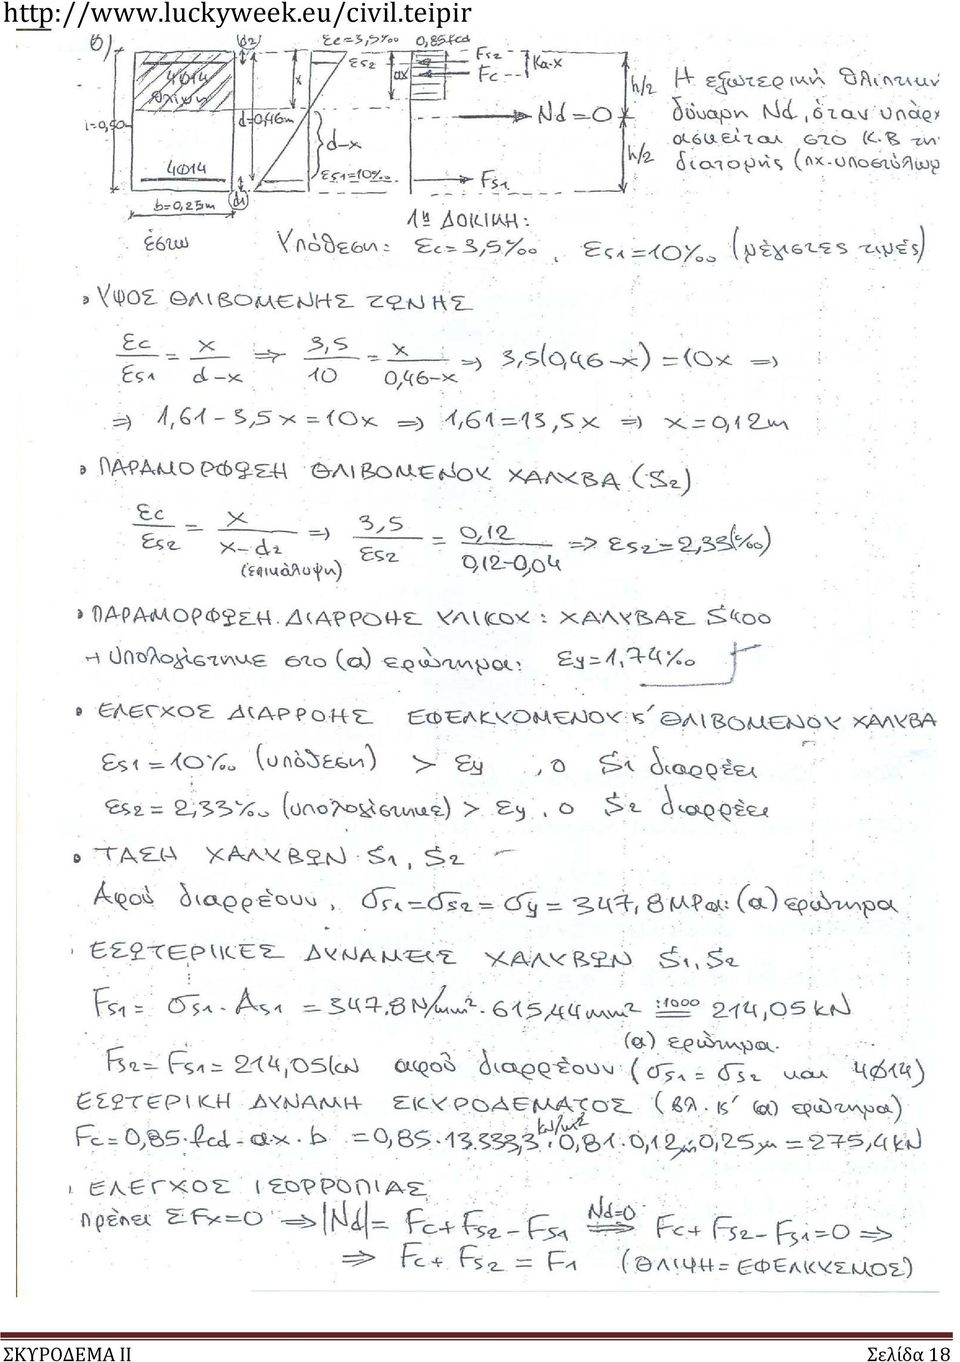 http://www.luckyweek.eu/civil.teipir
β) (d2) εc=3,5‰ 0,85fcd
εs2 Fs2 Fc Ka·x
4Φ14 θλίψη x αx h/2 Η εξωτερική θλιπτική
d=0,46m Nd=0 δύναμη Nd, όταν υπάρχ
d-x h/2 ασκείται στο Κ.Β τη
4Φ14 εs1=10‰ Fs1 διατομής (πχ. υποστύλωμ
b=0,25m (d1)
1η ΔΟΚΙΜΗ:
έστω Υπόθεση: εc=3,5‰, εs1=10‰ (μέγιστες τιμές)
ΥΨΟΣ ΘΛΙΒΟΜΕΝΗΣ ΖΩΝΗΣ
εc/εs1 = x/(d-x) ⇒ 3,5/10 = x/(0,46-x) ⇒ 3,5(0,46-x)=10x ⇒
⇒ 1,61-3,5x=10x ⇒ 1,61=13,5x ⇒ x=0,12m
ΠΑΡΑΜΟΡΦΩΣΗ ΘΛΙΒΟΜΕΝΟΥ ΧΑΛΥΒΑ (S2)
εc/εs2 = x/(x-d2) ⇒ 3,5/εs2 = 0,12/(0,12-0,04) ⇒ εs2=2,33(‰)
(επικάλυψη)
ΠΑΡΑΜΟΡΦΩΣΗ ΔΙΑΡΡΟΗΣ ΥΛΙΚΟΥ: ΧΑΛΥΒΑΣ S400
Υπολογίστηκε στο (α) ερώτημα: εy=1,74‰
ΕΛΕΓΧΟΣ ΔΙΑΡΡΟΗΣ ΕΦΕΛΚΥΟΜΕΝΟΥ Κ' ΘΛΙΒΟΜΕΝΟΥ ΧΑΛΥΒΑ
εs1=10‰ (υπόθεση) > εy, ο S1 διαρρέει
εs2=2,33‰ (υπολογίστηκε) > εy, ο S2 διαρρέει
ΤΑΣΗ ΧΑΛΥΒΩΝ S1, S2
Αφού διαρρέουν, σs1=σs2=σy=347,8MPa: (α) ερώτημα
ΕΣΩΤΕΡΙΚΕΣ ΔΥΝΑΜΕΙΣ ΧΑΛΥΒΩΝ S1, S2
Fs1= σs1·As1 = 347,8N/mm²·615,44mm² :1000 = 214,05kN
(α) ερώτημα.
Fs2=Fs1=214,05kN αφού διαρρέουν (σs1=σs2 και 4Φ14)
ΕΣΩΤΕΡΙΚΗ ΔΥΝΑΜΗ ΣΚΥΡΟΔΕΜΑΤΟΣ (βλ. κ' (α) ερώτημα)
Fc=0,85·fcd·αx·b =0,85·13333,3 kN/m²·0,81·0,12m·0,25m=275,4kN
ΕΛΕΓΧΟΣ ΙΣΟΡΡΟΠΙΑΣ
πρέπει ΣFx=0 ⇒ |Nd|= Fc+Fs2-Fs1 Nd=0 ⇒ Fc+Fs2-Fs1=0 ⇒
⇒ Fc+Fs2=F1 (ΘΛΙΨΗ=ΕΦΕΛΚΥΣΜΟΣ)
ΣΚΥΡΟΔΕΜΑ ΙΙ Σελίδα 18